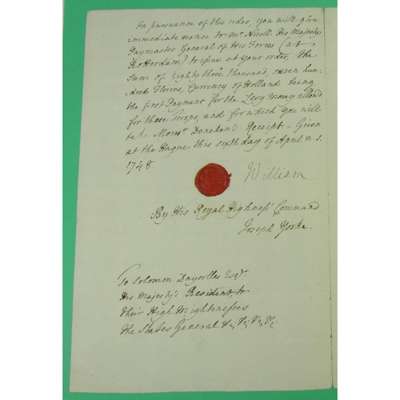 In pursuance of this order, you will give
immediate notice to Mr Nicoll His Majestys
Paymaster General of His Forces (at
Rotterdam) to issue at your order, the
Sum of Eighty three thousand, seven hun
dred Florins, Currency of Holland being
the first Payment for the Levy money allow'd
for those Troops, and for which you will
take Monsr Receipt. Given
at the Hague this sixth day of April n.s.
1748.
William
By His Royal Highness Command
Joseph Yorke.
To Solomon Dayrolles Esqr
His Majesty's Resident to
their High Mightinesses
the States General &c, &c, &c,